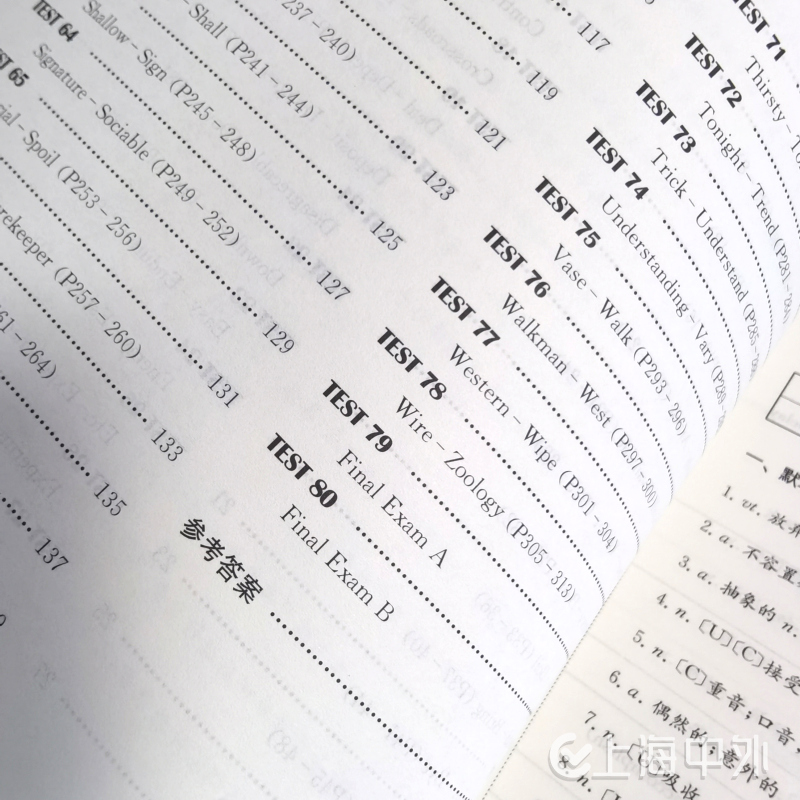 117
119
121
237–240)
123
– Shall (P241–244)
125
Shallow – Sign (P245–248)
TEST 64 127
Signature – Sociable (P249–252)
TEST 65 129
cial – Spoil (P253–256)
131
rekeeper (P257–260)
133
61–264)
135
137
TEST 71
Thirsty – To
TEST 72
Tonight – Trend (P281–28
TEST 73
Trick – Understand (P285–
TEST 74
Understanding – Vary (P289–
TEST 75
Vase – Walk (P293–296)
TEST 76
Walkman – West (P297–300)
TEST 77
Western – Wipe (P301–304)
TEST 78
Wire – Zoology (P305–313)
TEST 79
Final Exam A
TEST 80
Final Exam B
参考答案
一、默
1. vt. 放弃
2. a. 不容置
3. a. 抽象的 n.
4. n. [U][C]接受
5. n. [C]重音；口音；
6. a. 偶然的；意外的
7. n. [C]吸收
8. n.
上海中外